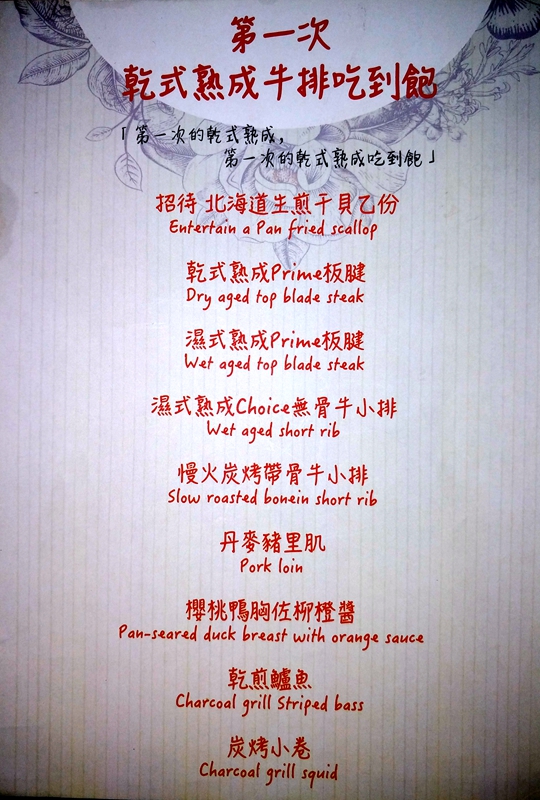 第一次
乾式熟成牛排吃到飽
「第一次的乾式熟成，
第一次的乾式熟成吃到飽」
招待 北海道生煎干貝乙份
Entertain a Pan fried scallop
乾式熟成Prime板腱
Dry aged top blade steak
濕式熟成Prime板腱
Wet aged top blade steak
濕式熟成Choice無骨牛小排
Wet aged short rib
慢火炭烤帶骨牛小排
Slow roasted bonein short rib
丹麥豬里肌
Pork loin
櫻桃鴨胸佐柳橙醬
Pan-seared duck breast with orange sauce
乾煎鱸魚
Charcoal grill Striped bass
炭烤小卷
Charcoal grill squid